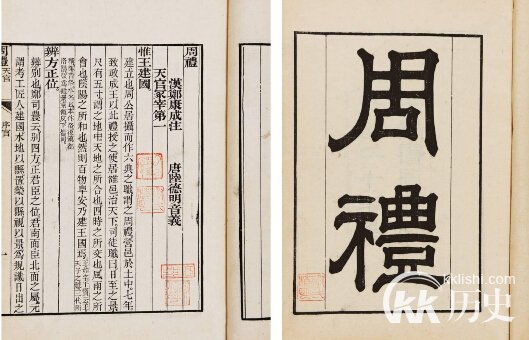 周禮
漢鄭康成注　唐陸德明音義
天官冢宰第一
惟王建國
建立也周公居攝而作六典之職謂之周禮營邑於土中七年
致政成王以此禮授之使居雒邑治天下司徒職曰日至之景
尺有五寸謂之地中天地之所合也四時之所交也風雨之所
會也陰陽之所和也然則百物阜安乃建王國焉
辨方正位
辨別也鄭司農云別四方正君臣之位君南面臣北面之屬元
謂考工匠人建國水地以縣置槷以縣視以景爲規識日出之
周禮
天官
序官
一
周禮
kklishi.com
KK历史